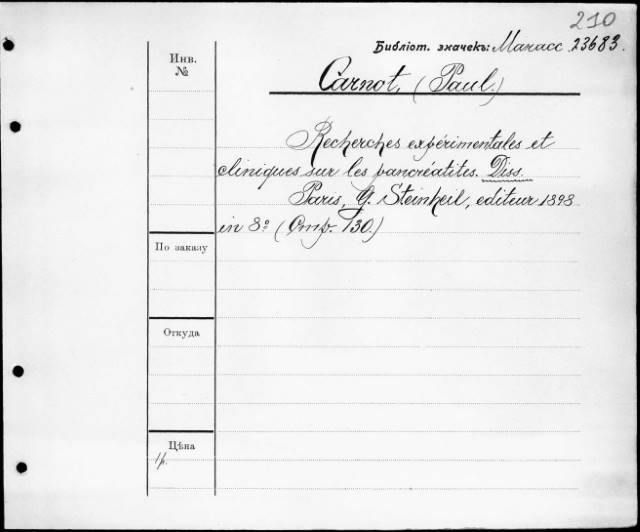 210
Библіот. значекъ: Манасс. 23683.
Инв.
№
Carnot, (Paul.)
Recherches expérimentales et
cliniques sur les pancréatites. Diss.
Paris, G. Steinheil, editeur 1898
in 8º (Стр. 130.)
По заказу
Откуда
Цѣна
1р.